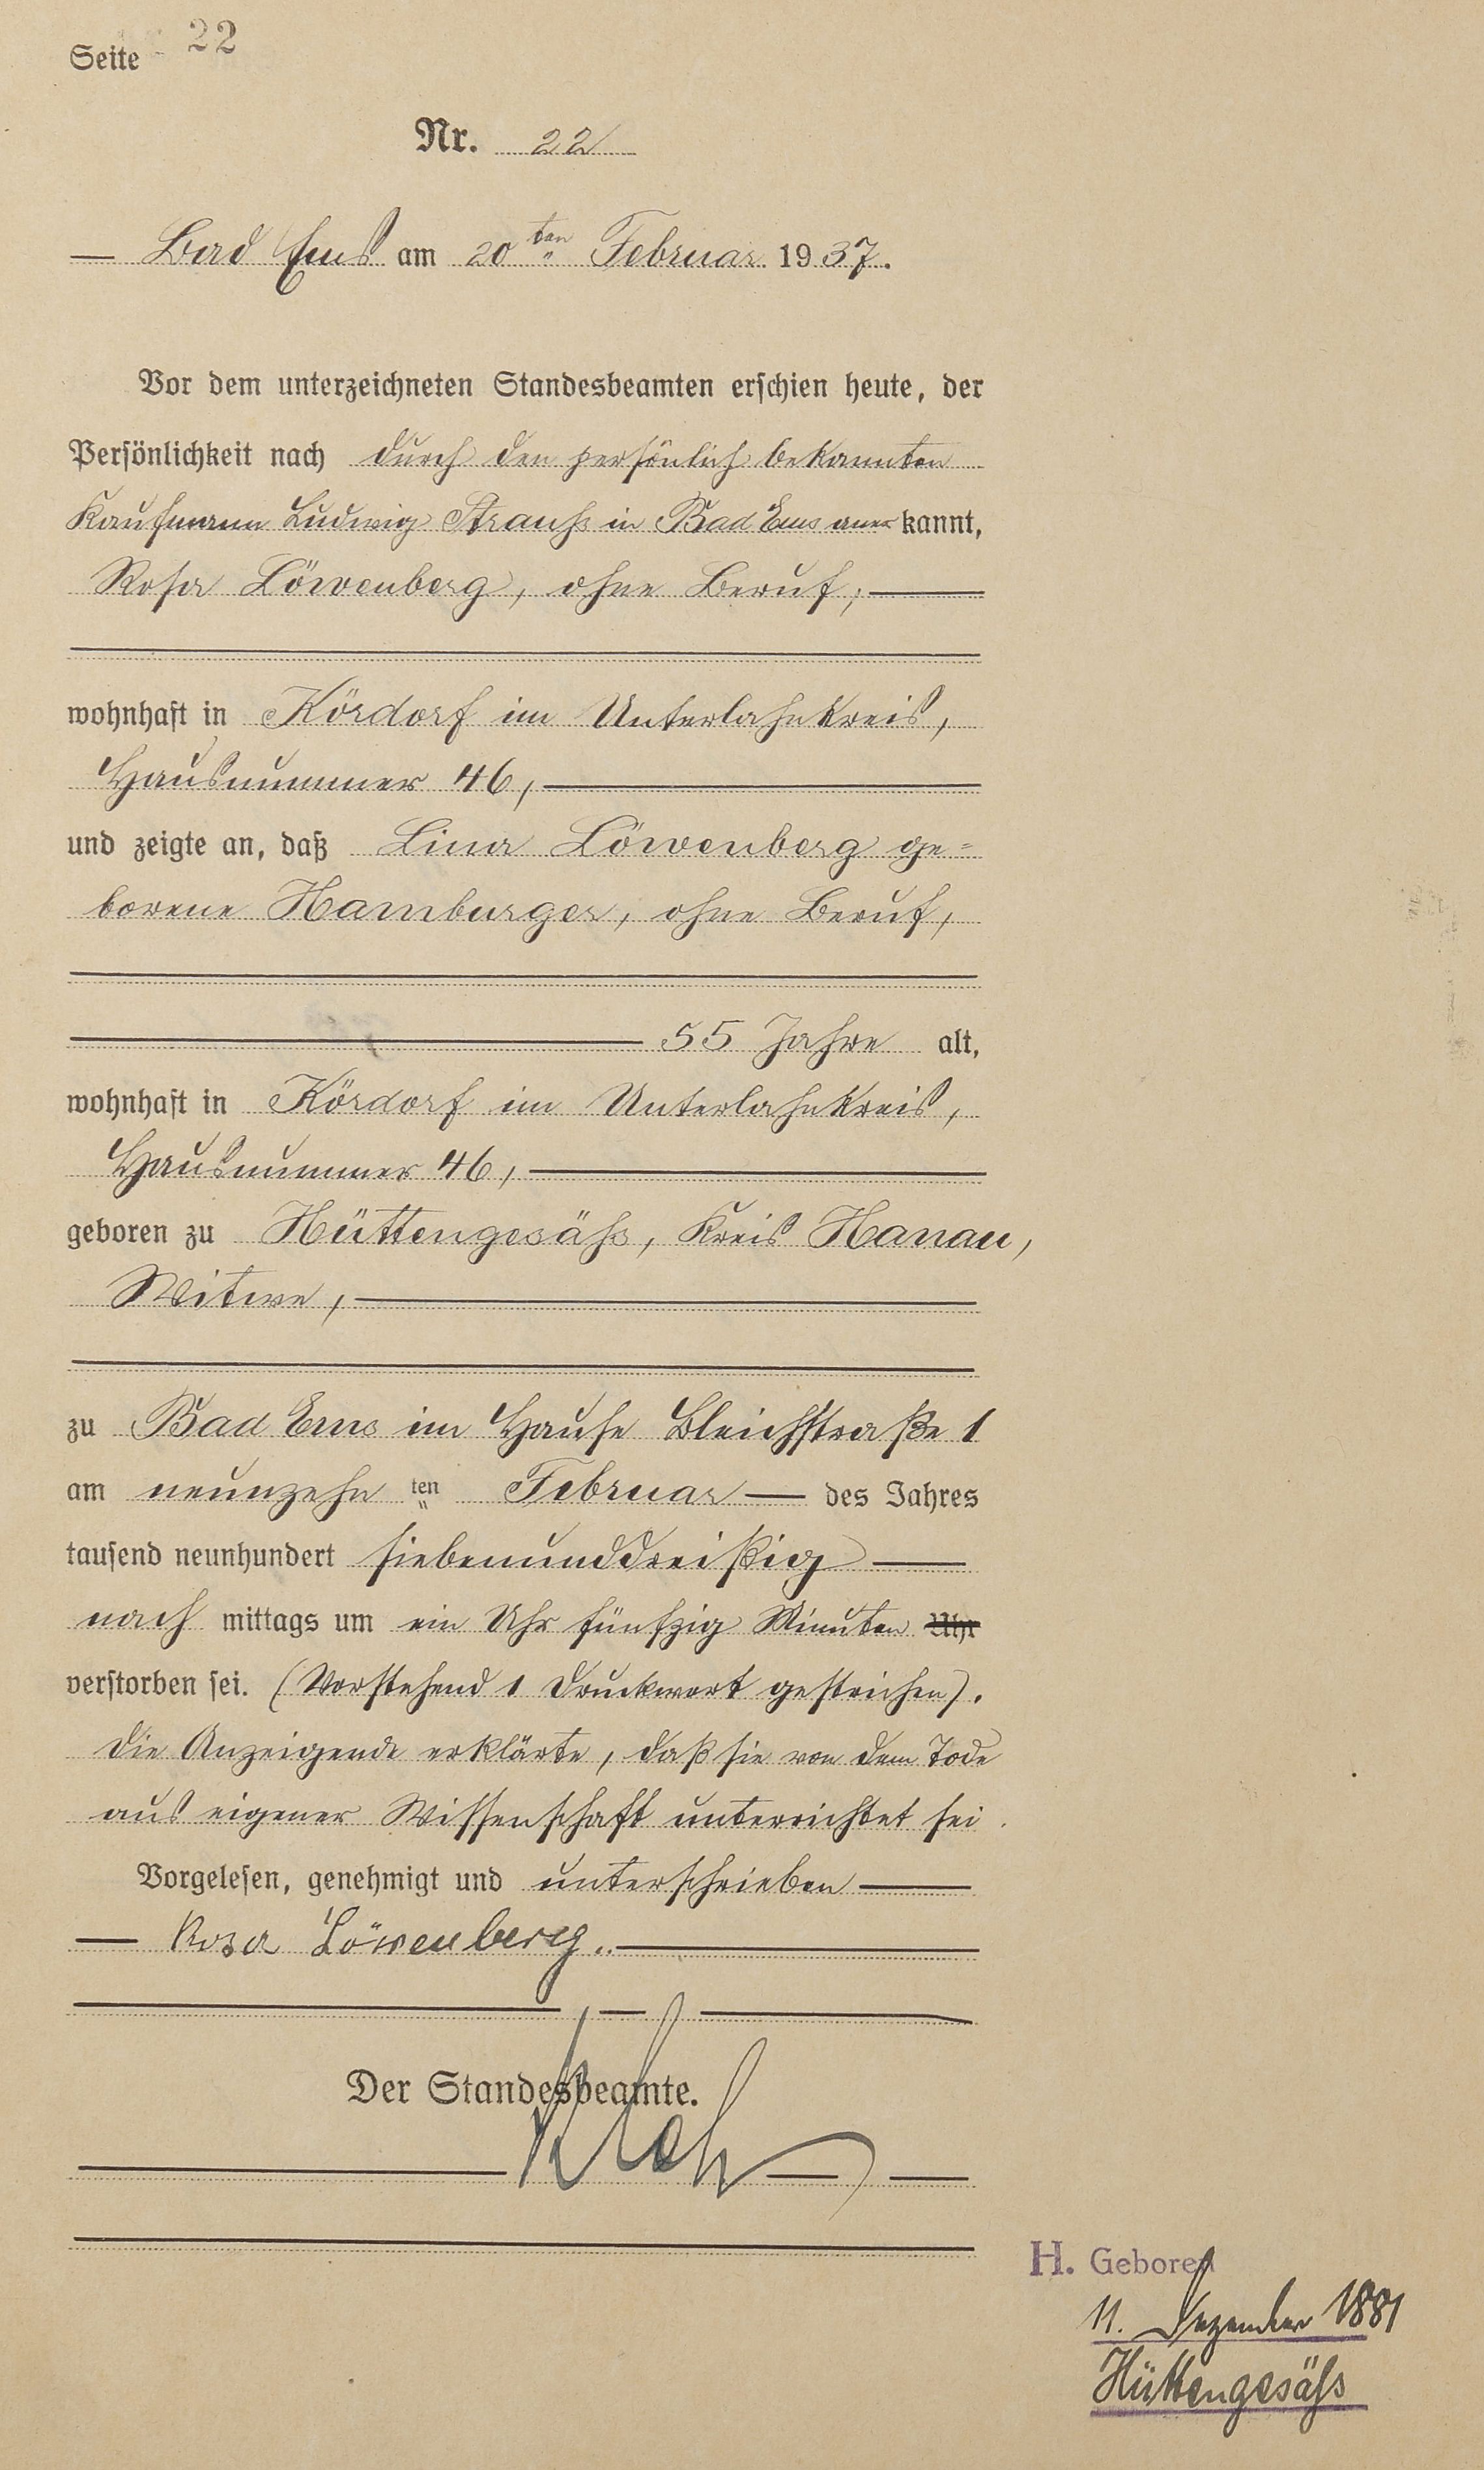 Seite 22
Nr. 22
— Bad Ems am 20ten Februar 1937.
Vor dem unterzeichneten Standesbeamten erschien heute, der
Persönlichkeit nach durch den persönlich bekannten
Kaufmann Ludwig Strauß in Bad Ems anerkannt,
Rosa Löwenberg, ohne Beruf,
wohnhaft in Kördorf im Unterlahnkreis,
Hausnummer 46,
und zeigte an, daß Lina Löwenberg ge=
borene Hamburger, ohne Beruf,
55 Jahre alt,
wohnhaft in Kördorf im Unterlahnkreis,
Hausnummer 46,
geboren zu Hüttengesäß, Kreis Hanau,
Witwe,
zu Bad Ems im Hause Bleichstraße 1
am neunzehnten Februar — des Jahres
tausend neunhundert siebenunddreißig
nach mittags um ein Uhr fünfzig Minuten Uhr
verstorben sei. (Vorstehend 1 Druckwort gestrichen).
Die Anzeigende erklärte, daß sie von dem Tode
aus eigener Wissenschaft unterrichtet sei.
Vorgelesen, genehmigt und unterschrieben
— Rosa Löwenberg.
Der Standesbeamte.
H. Geboren
11. Dezember 1881
Hüttengesäß